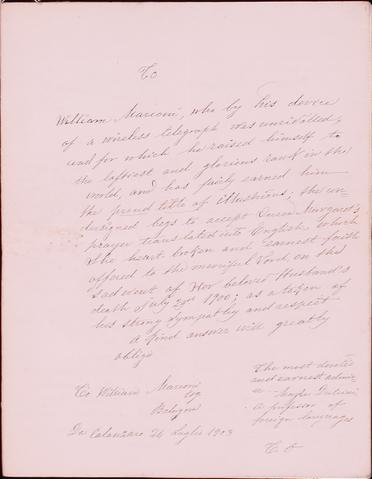 To
William Marconi, who by his device
of a wireless telegraph was unrivalled,
and for which he raised himself to
the loftiest and glorious rank in the
world, and has fairly earned him
the proud title of illustrious; the un
designed begs to accept Queen Margaret's
prayer translated into English, which
she heart broken and earnest faith
offered to the merciful Lord, on the
sad event of Her beloved Husband's
death July 29th 1900; as a token of
his strong sympathy and respect
A kind answer will greatly
oblige
To William Marconi
Esq
Bologna
The most devoted
and earnest admirer
A professor of
foreign languages
Da Catanzaro 26 Luglio 1903
T. O